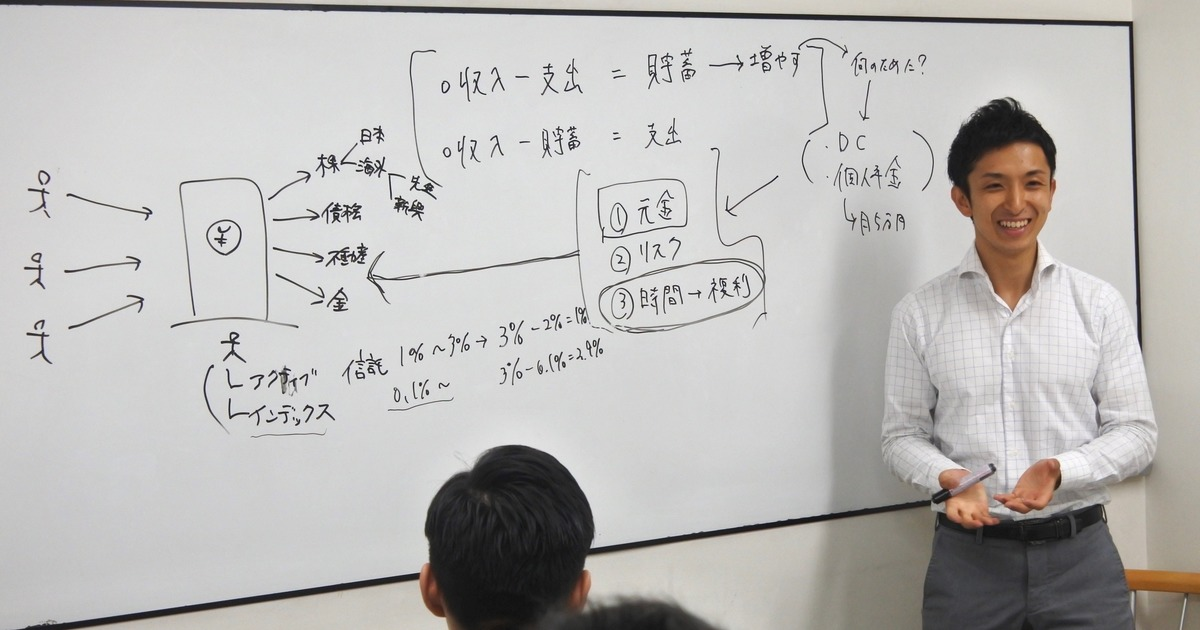 ○収入－支出 = 貯蓄 → 増やす
何のために?
○収入－貯蓄 = 支出
・DC
・個人年金
↳月5万円
① 元金
② リスク
③ 時間 → 複利
¥
株
日本
海外
先進
新興
債権
不動産
金
アクティブ
インデックス
信託 1%～3% → 3%－2%=1%
0.1%～
3%－0.1%=2.9%